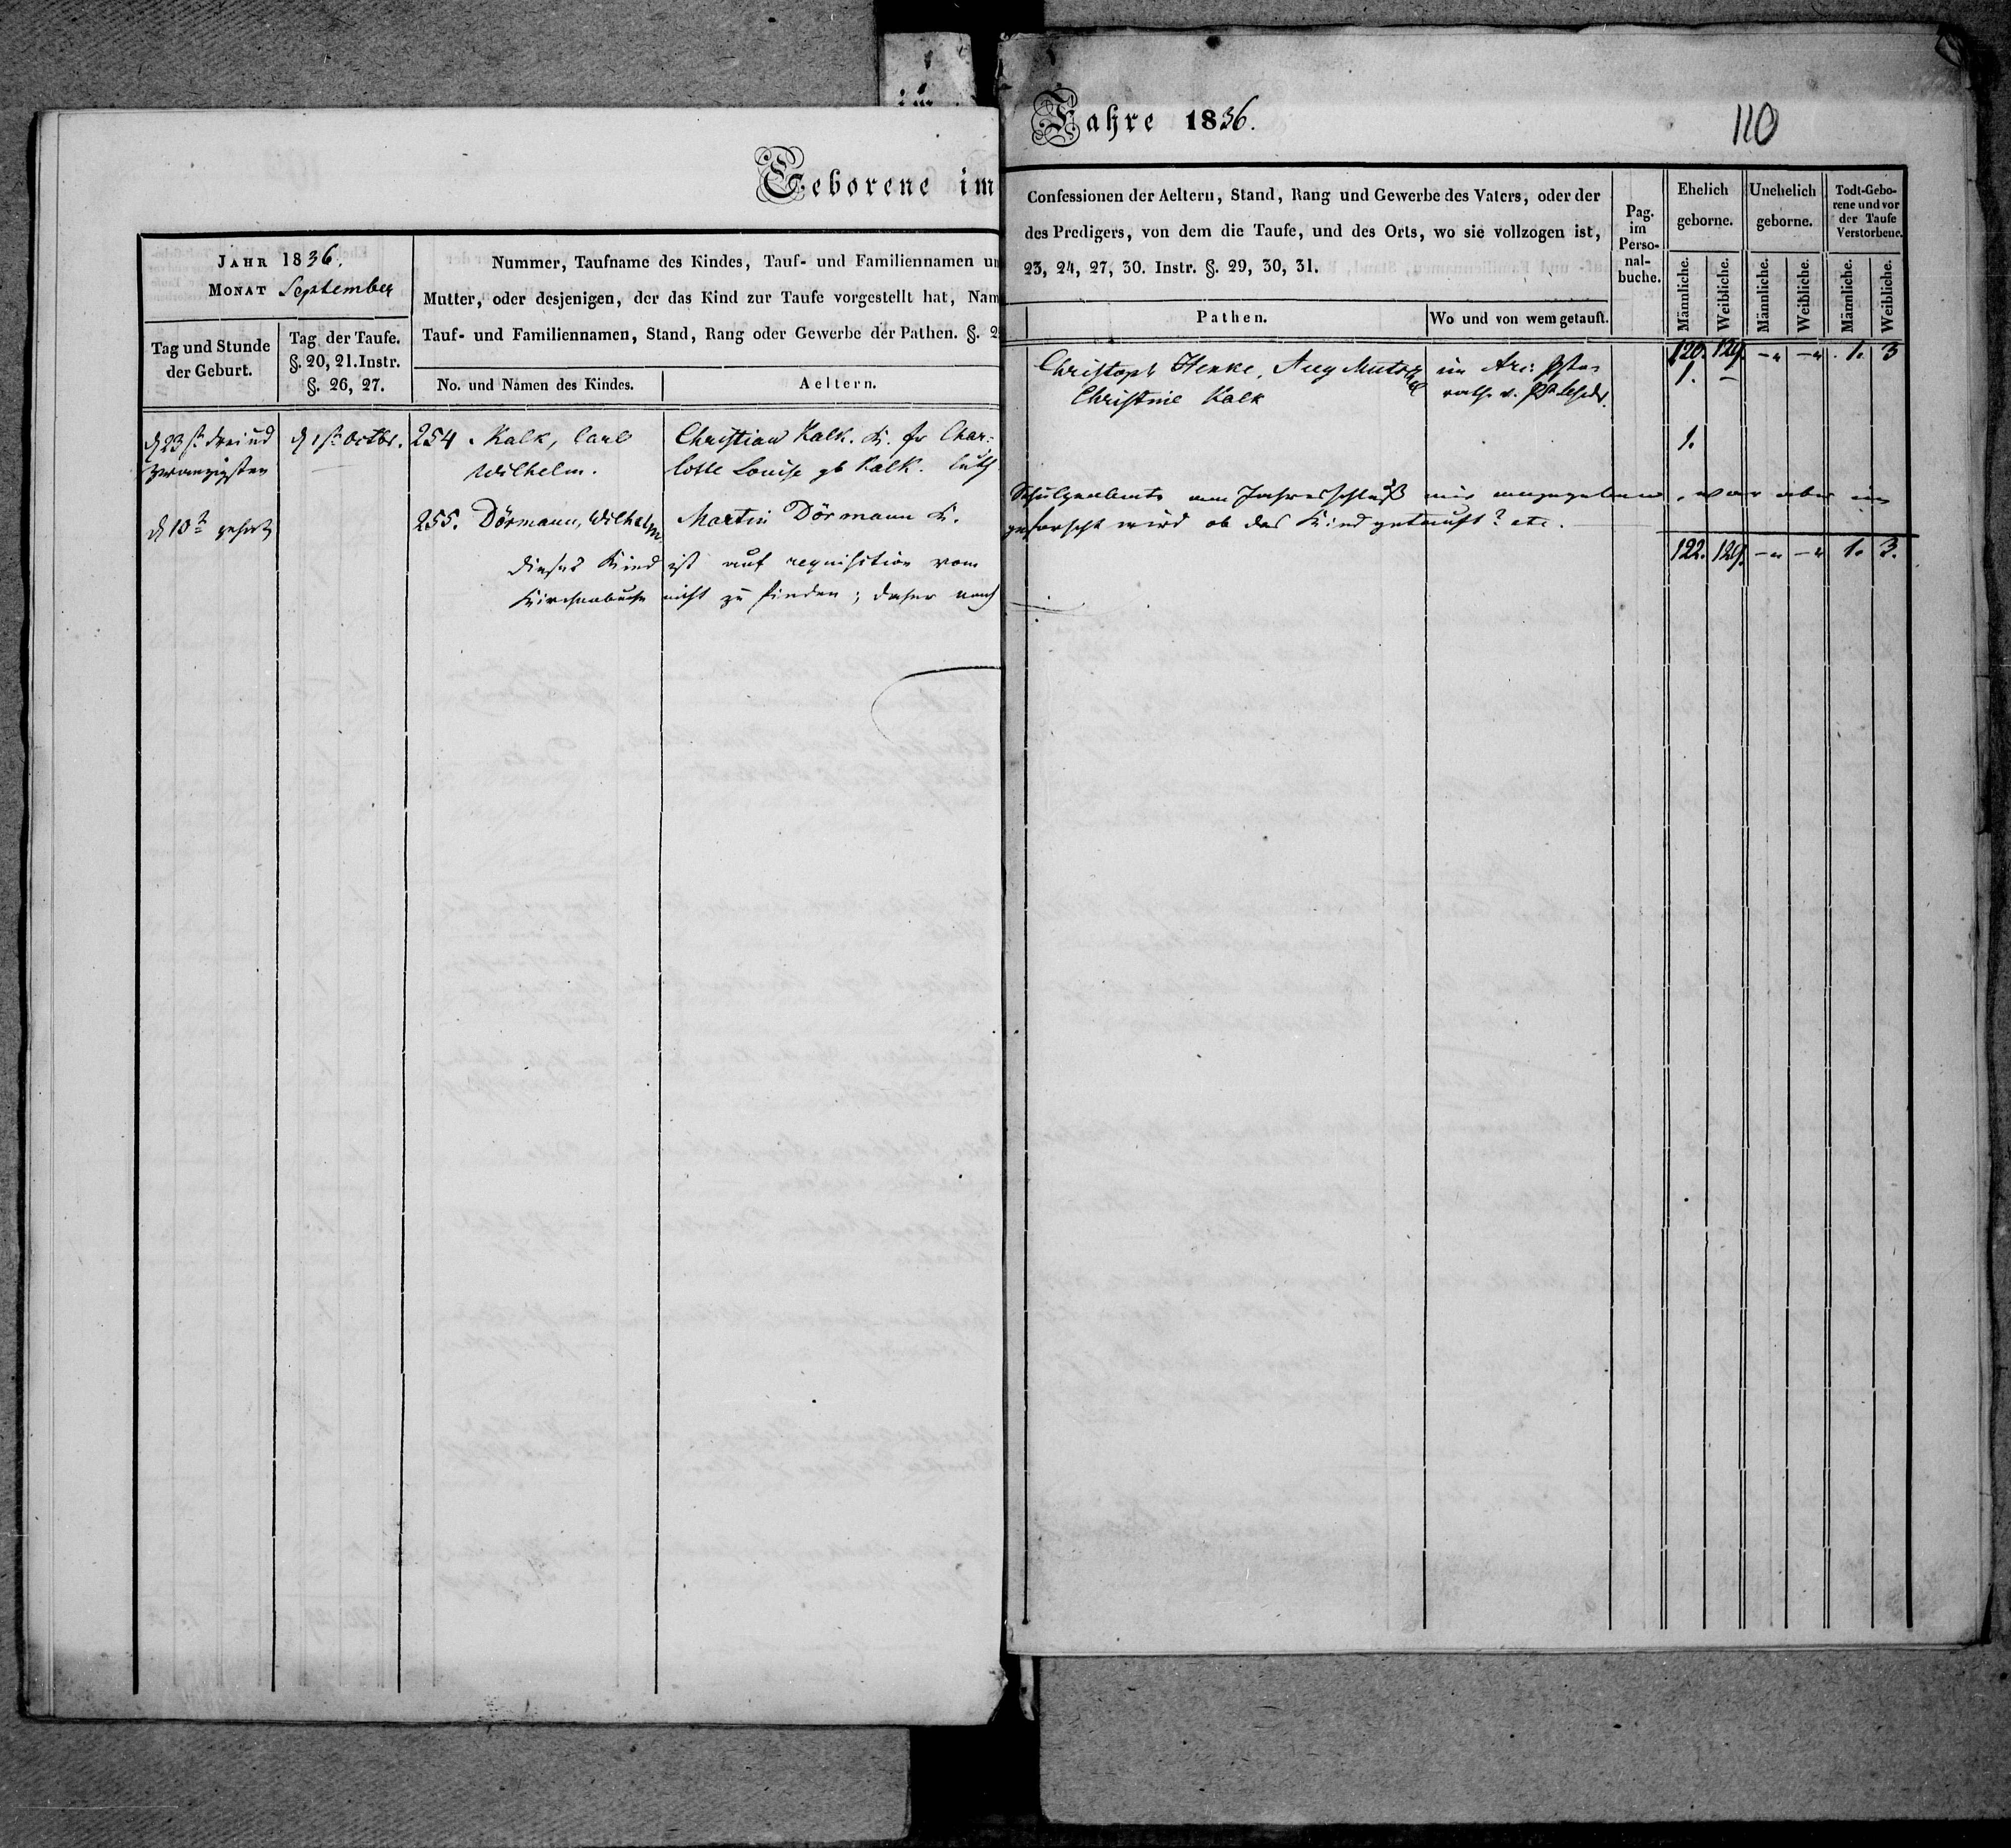 Geborene im
Jahre 1836.
110
JAHR 1836.
MONAT September
Nummer, Taufname des Kindes, Tauf- und Familiennamen un
Mutter, oder desjenigen, der das Kind zur Taufe vorgestellt hat, Nam
Tauf- und Familiennamen, Stand, Rang oder Gewerbe der Pathen. §. 2
Tag und Stunde
der Geburt.
Tag der Taufe.
§. 20, 21. Instr.
§. 26, 27.
No. und Namen des Kindes.
Aeltern.
d 23st drei und
zwanzigsten
d 1st Octbr.
254. Kalk, Carl
Wilhelm.
Christian Kalk. K. fr Char-
lotte Louise gb Kalk. luth
d 10t zehnt
255. Dörmann, Wilhelm
Martin Dörmann K.
Dieses Kind ist auf requisition vom
Kirchenbuche nicht zu finden; daher nach
Confessionen der Aeltern, Stand, Rang und Gewerbe des Vaters, oder der
des Predigers, von dem die Taufe, und des Orts, wo sie vollzogen ist,
23, 24, 27, 30. Instr. §. 29, 30, 31.
Pathen.
Wo und von wem getauft.
Pag.
im
Perso-
nal-
buche.
Ehelich
geborne.
Unehelich
geborne.
Todt-Gebo-
rene und vor
der Taufe
Verstorbene.
Männliche.
Weibliche.
Männliche.
Weibliche.
Männliche.
Weibliche.
120. 129. -„ -„ 1. 3
Christoph Henke, Aug
Christine Kalk
im
v.
1. -
1.
am Jahresschluß mir angegeben, war aber im
geforscht wird ob das Kind getauft? etc.
122. 129. -„ -„ 1. 3.